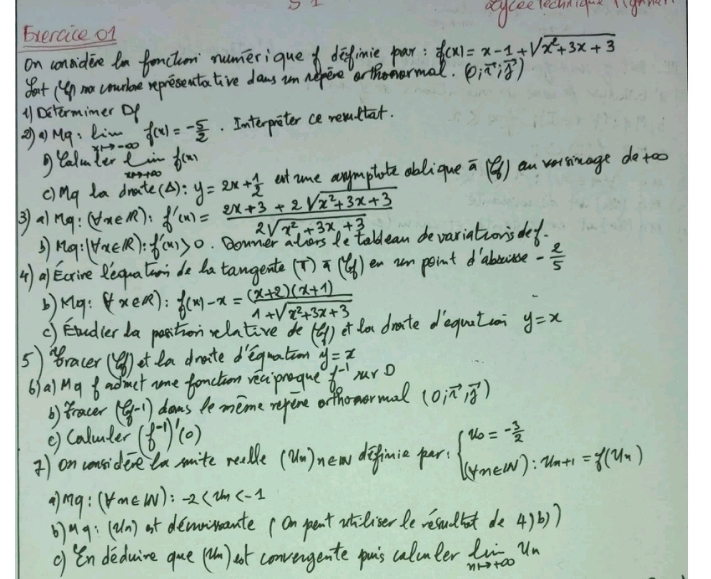 S 1
Lycée Technique
Exercice 01
On considère la fonction numérique f définie par : f(x) = x - 1 + √(x²+3x+3)
Soit (Cf) sa courbe représentative dans un repère orthonormal. (O; i⃗; j⃗)
1) Déterminer Df
2) a) Mq : lim x→-∞ f(x) = -5/2 . Interpréter ce resultat.
b) Calculer lim x→+∞ f(x)
c) Mq la droite (Δ): y = 2x + 1/2 est une asymptote oblique à (Cf) au voisinage de +∞
3) a) Mq : (∀x∈ℝ): f'(x) = (2x+3 + 2√(x²+3x+3)) / (2√(x²+3x+3))
b) Mq: (∀x∈ℝ): f'(x) > 0 . Donner alors le tableau de variations de f.
4) a) Écrire l'équation de la tangente (T) à (Cf) en un point d'abscisse - 2/5
b) Mq : (∀x∈ℝ): f(x) - x = ((x+2)(x+1)) / (1+√(x²+3x+3))
c) Étudier la position relative de (Cf) et la droite d'equation y = x
5) Tracer (Cf) et la droite d'équation y = x
6) a) Mq f admet une fonction réciproque f⁻¹ sur D
b) Tracer (Cf⁻¹) dans le même repère orthonormal (O; i⃗; j⃗)
c) Calculer (f⁻¹)'(0)
7) On considère la suite réelle (Un)n∈ℕ définie par : { U0 = -3/2
(∀n∈ℕ) : Un+1 = f(Un)
a) Mq : (∀n∈ℕ) : -2 < Un < -1
b) Mq : (Un) est décroissante ( On peut utiliser le résultat de 4) b))
c) En déduire que (Un) est convergente puis calculer lim n→+∞ Un